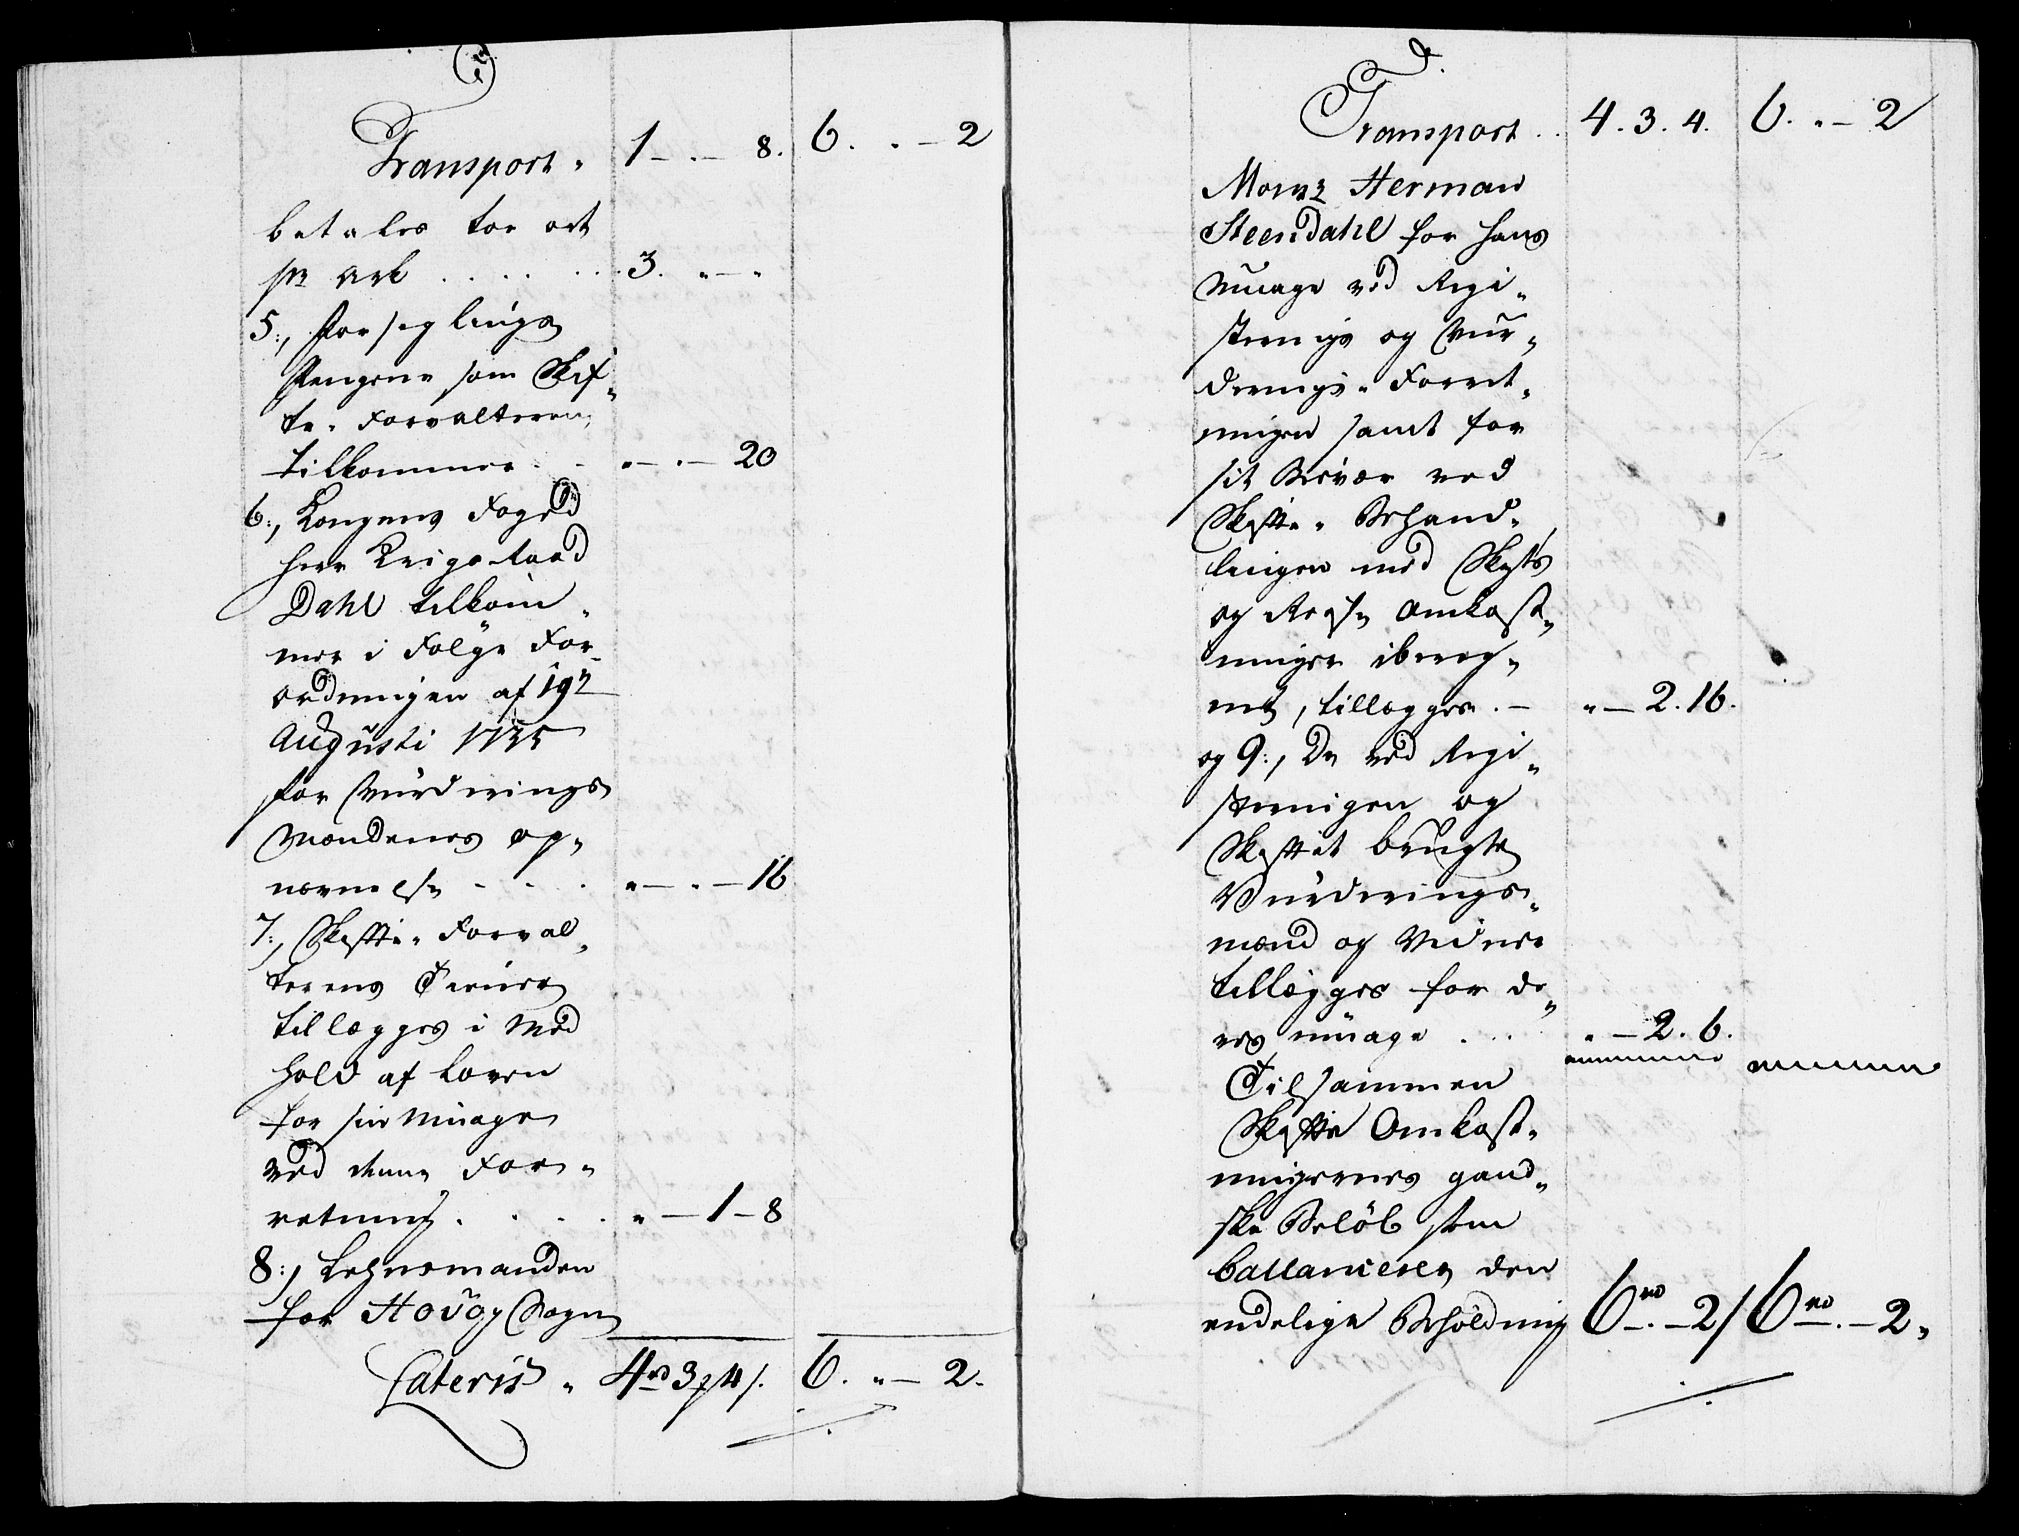 Transport. 1 – . – 8. 6. . – 2
betales tor ort
pr ark . . . . . 3. „ – „
5:, Forseglings
Pengene som Skif„
te„ Forvalteren
tilkommer . . „ – . – 20
6:, Kongens Foged
Herr Krigsraad
Dahl tilkom„
mer i Følge For„
ordningen af 19n
Augusti 1735
for Vurderings
Mændenes op„
nævnelse . . . „ – . – 16
7:, Skifte„ Forval„
terens Tiener
tillegges i Med
hold af Loven
for sin Umage
ved denne For„
retning . . . . „ – 1 – 8
8:, Lehnsmanden
for Høvog Sogn
Lateris „ 4rd 3 4s. 6. „ – 2.
Transport . . 4. 3. 4. 6. „ – 2
Monsr Herman
Steendahl for hans
Umage ved Regi„
strerings og Vur„
derings„ Forret„
ningen samt for
sit Besvær ved
Skifte„ Behand„
lingen med Skyds
og Reyse Omkost„
ninger ibereg„
net, tillægges . – „ – 2. 16.
og 9:, De ved Regi„
streringen og
Skiftet brugte
Vurderings„
mænd og Vidner
tillægges for de„
res umage . . . „ – 2. 6.
Tilsammen
Skifte Omkost„
ningernes gand„
ske Beløb som
ballancerer den
endelige Beholdning 6rd – . – 2 / 6rd – . – 2„